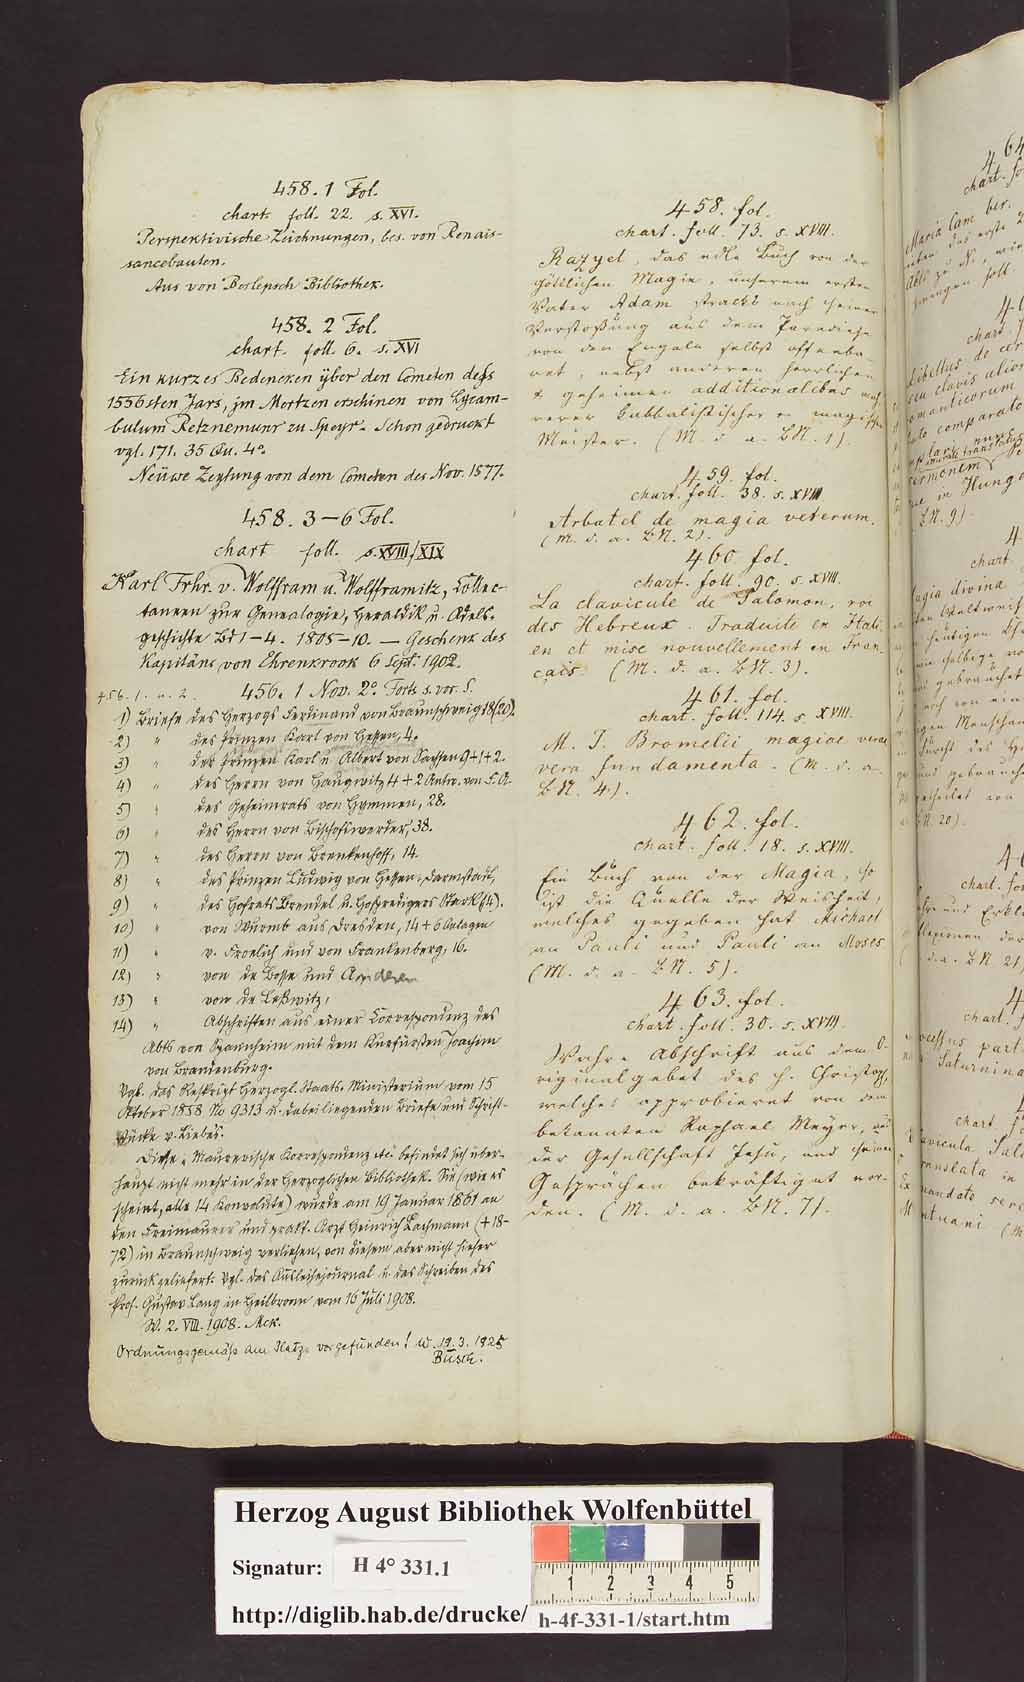 458. 1 Fol.
chart. foll. 22. s. XVI.
Perspektivische Zeichnungen, bes. von Renais-
sancebauten.
Aus von Berlepsch Bibliothek.
458. 2 Fol.
chart. foll. 6. s. XVI
Ein kurzes Bedencken über den Cometen dess
1556sten Jars, jm Mertzen erschinen von
zu Speyr. Schon gedruckt
vgl. 171. 35 Qu. 4°.
Neüwe Zeytung von dem Cometen des Nov. 1577.
458. 3–6 Fol.
chart foll. s. XVIII/XIX
Karl Frhr. v. Wolffram u. Wolfframitz, Collec-
taneen zur Genealogie, Heraldik u. Adels-
geschichte Bd 1–4. 1805–10. — Geschenk des
Kapitäns von Ehrenkrook 6 Sept. 1902.
456. 1. u. 2. 456. 1 Nov. 2° Forts. s. vor. S.
1) Briefe des Herzogs Ferdinand von Braunschweig 18 (20).
2) " des Prinzen Karl von Hessen, 4.
3) " der Prinzen Karl u. Albert von Sachsen 9+1+2.
4) " des Herrn von Haugwitz 4+2 Antw. von F. A.
5) " des Geheimrats von Hymmen, 28.
6) " des Herrn von Bischofswerder, 38.
7) " des Herrn von Brenkenhoff, 14.
8) " des Prinzen Ludwig von Hessen-Darmstadt,
9) " des Hofrats Brendel u. Hofpredigers Stark (14).
10) " von Wurmb aus Dresden, 14+6 Anlagen
11) " v. Froelich und von Frankenberg, 16.
12) " von de Bosse und Anderen
13) " von de Leßwitz,
14) " Abschriften aus einer Correspondenz des
Abts von Spannheim mit dem Kurfürsten Joachim
von Brandenburg.
Vgl. das Reskript Herzogl. Staats-Ministerium vom 15
Oktober 1858 No 9313 u. dabeiliegenden Briefe und Schrift-
stücke v. Liebes.
Diese "Maurerische Korrespondenz etc. befindet sich über-
haupt nicht mehr in der Herzoglichen Bibliothek. Sie (wie es
scheint, alle 14 Konvolute) wurde am 19 Januar 1861 an
den Freimaurer und prakt. Arzt Heinrich Lachmann (+18-
72) in Braunschweig verliehen, von diesem aber nicht hieher
zurückgeliefert: Vgl. das Ausleihejournal u. das Schreiben des
Prof. Gustav Lang in Heilbronn vom 16 Juli 1908.
W. 2. VIII. 1908. Mck.
Ordnungsgemäß am Platze vorgefunden! W. 19. 3. 1925
Busch.
458. fol.
chart. foll. 73. s. XVIII.
Razyel, das edle Buch von der
göttlichen Magie, unserem ersten
Vater Adam stracks nach seiner
Verstoßung aus dem Paradiese
von den Engeln selbst offenba-
ret, nebst anderen herrlichen
& geheimen additionalibus meh-
rerer kabbalistischer en magischer
Meister. (M. d. a. BN. 1).
459. fol.
chart. foll. 38. s. XVIII
Arbatel de magia veterum.
(M. d. a. BN. 2).
460 fol.
chart. foll. 90. s. XVIII.
La clavicule de Salomon, roi
des Hebreux. Traduite en Itali-
en et mise nouvellement en Fran-
çais. (M. d. a. BN. 3).
461. fol.
chart. foll. 114. s. XVIII.
M. J. Bromelii magiae verae
vera fundamenta. (M. d. a.
BN. 4).
462. fol.
chart. foll. 18. s. XVIII.
Ein Buch von der Magia, so
ist die Quelle der Weisheit,
welches gegeben hat Michael
an Pauli und Pauli an Moses
(M. d. a. BN. 5).
463. fol.
chart. foll. 30. s. XVIII.
Wahre Abschrift aus dem O-
riginalgebet des h. Christoph,
welches approbieret von dem
bekannten Raphael Meyer, aus
der Gesellschaft Jesu, und seinen
Gesprächen bekräftiget wor-
den. (M. d. a. BN. 7).
464
chart. fo
Maria Cam ber.
das erste
chart.
Libellus de cor
romanticorum
comparato
in Hunga
BN. 9).
chart.
magia divina
BN. 20).
chart. fo
und Erkl
d. a. BN 21)
chart. f
ocessus part
Saturnina
chart. fo
avicula Salo
translata in
mandato sere
(M
Herzog August Bibliothek Wolfenbüttel
Signatur: H 4° 331.1
http://diglib.hab.de/drucke/ h-4f-331-1/start.htm
1 2 3 4 5